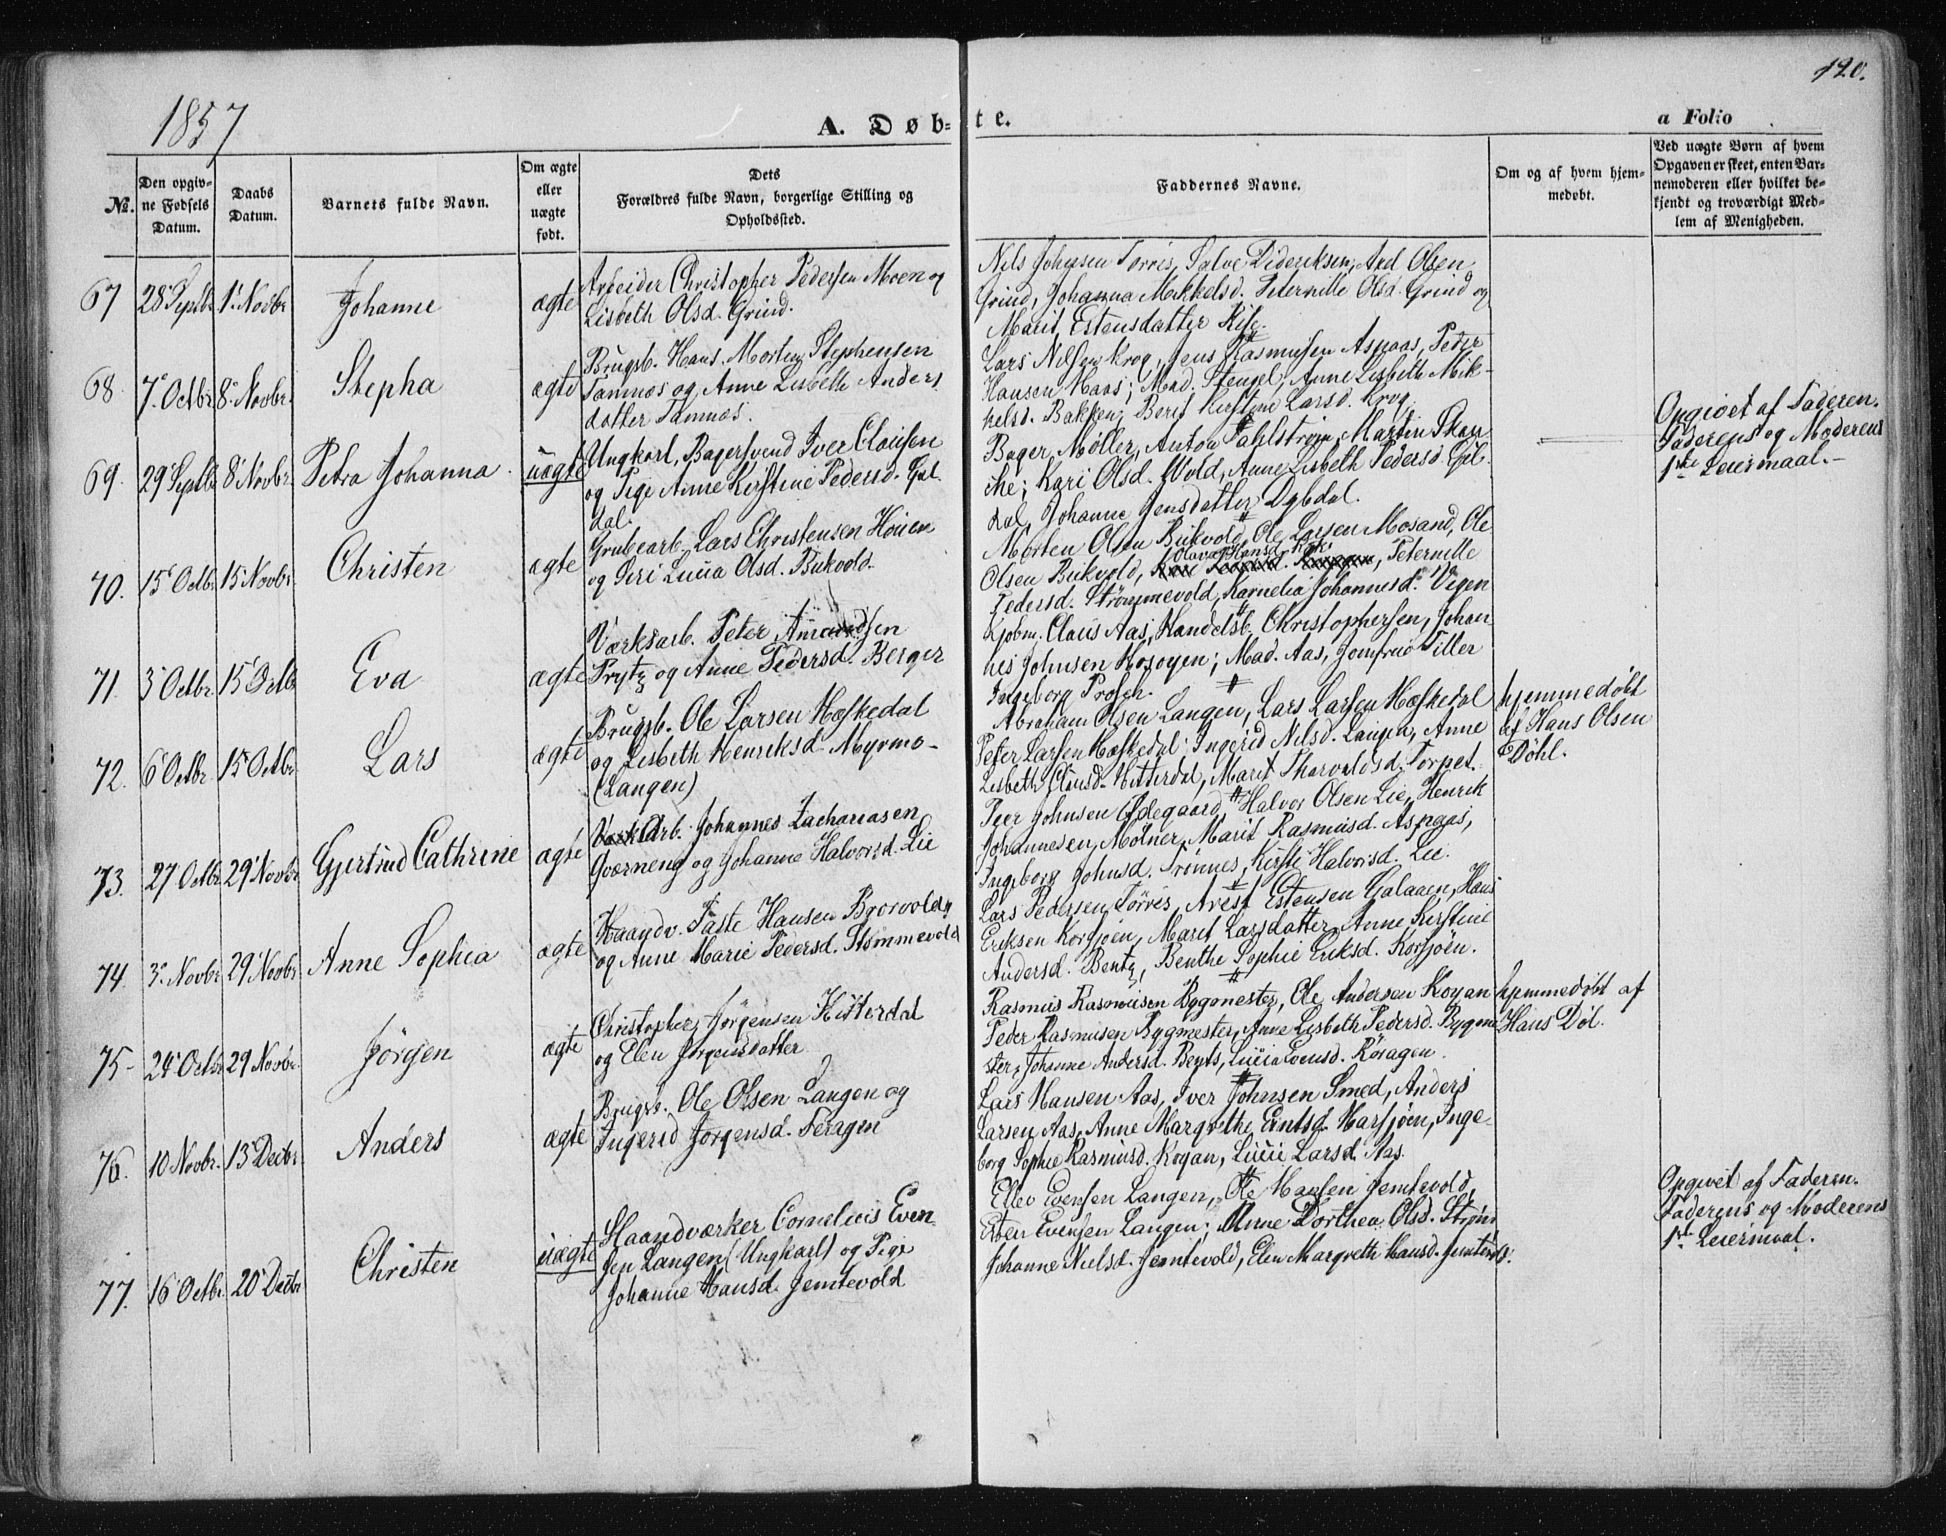 120.
1857
A. Døb-
te.
a Folio
№.
Den opgiv-
ne Fødsels
Datum.
Daabs
Datum.
Barnets fulde Navn.
Om ægte
eller
uægte
født.
Dets
Forældres fulde Navn, borgerlige Stilling og
Opholdssted.
Faddernes Navne.
Om og af hvem hjem-
medøbt.
Ved uægte Børn af hvem
Opgaven er skeet, enten Bar-
nemoderen eller hvilket be-
kjendt og troværdigt Med-
lem af Menigheden.
67 28 Septbr 1. Novbr Johanne ægte
Arbeider Christopher Pedersen Moen og
Lisbeth Olsd. Grind.
Nils Johnsen Torres, Salve Dideriksen, And Olsen
Grind, Johanna Mikkelsd. Peternille Olsd Grind og
Marit Estensdatter Rise.
68 7. Octbr. 8. Novbr. Stepha ægte
Brugsb. Hans Morten Stephensen
Tamnæs og Anne Lisbeth Anders
datter Tamnæs.
Lars Nilsen Krog, Jens Rasmusen Aspaas, Peder
Hansen Naas; Mad. Stengel, Anne Lisbeth Mik-
kelsd. Bakken, Berit Kirstine Larsd. Krog.
69. 29 Septbr 8 Novbr. Petra Johanna. uægte
Ungkarl, Bagersvend Iver Clausen
og Pige Anne Kirstine Pedersd. Gul
dal.
Bager Møller, Anton Fahlstrøm, Martin Skan
che; Kari Olsd. Wold, Anne Lisbeth Pedersd. Gul-
dal, Johanne Jensdatter Dybdal.
Opgivet af Faderen.
Faderens og Moderens
1ste Leiermaal.-
70. 15 Octbr. 15 Novbr. Christen ægte
Grubearb. Lars Christensen Houen
og Siri Lucia Olsd. Bukvold.
Morten Olsen Bukvold, Ole Larsen Mosand, Ole
Olsen Bukvold, Peternille
Pedersd. Strømmevold, Karnelia Johannesd. Vigen
71. 3 Octbr. 15 Octbr Eva ægte
Værksarb. Peter Amundsen
Prytz og Anne Pedersd. Berger
Kjøbm. Claus Aas, Handelsb. Christophersen, Johan
nes Johnsen Mosøyen; Mad. Aas, Jomfrue Tiller
Ingeborg Prosch.
72. 6 Octbr. 15 Octbr Lars ægte
Brugsb. Ole Larsen Hæskedal
og Lisbeth Henriksd. Myrmo-
(Langen)
Abraham Olsen Langen, Lars Larsen Hæskedal
Peter Larsen Hæskedal; Ingerid Nilsd. Langen, Anne
Lisbeth Hitterdal, Marit Thorvaldsd. Torpet.
hjemmedøbt
af Hans Olsen
Døhl.
73. 27 Octbr 29 Novbr Gjertrud Cathrine ægte
Værksarb. Johannes Zachariasen
Qværneng og Johanne Halvorsd. Lie
Peer Johnsen Ødegaard, Halvor Olsen Lie, Henrik
Johannesen, Molner, Marit Rasmusd. Aspaas,
Ingeborg Johnsd. Trønnes, Kirsti Halvorsd. Lie.
74. 3. Novbr 29 Novbr. Anne Sophia ægte
Haandv. Taste Hansen Broevold
og Anne Marie Pedersd. Stømmevold
Lars Pedersen Torres, Arest Estensen Galaaen, Hans
Eriksen Korsjøen, Marit Larsdatter, Anne Kirstine
Andersd. Bentz, Benthe Sophie Eriksd. Korsjøen.
75- 24 Octbr 29 Novbr. Jørgen ægte
Christopher Jørgensen Hitterdal
og Elen Jørgensdatter
Rasmus Rasmusen Bygmester, Ole Andersen Koyan
Peder Rasmusen Bygmester, Anne Lisbeth Pedersd. Bygme
ster, Johanne Andersd. Bents, Lucia Evensd. Røragen.
hjemmedøbt af
Hans Døl.
76. 10 Novbr. 13 Decbr. Anders ægte
Brugsb. Ole Olsen Langen og
Ingerid Jørgensd. Feragen
Lars Hansen Aas, Iver Johnsen Smed, Anders
Larsen Aas, Anne Margrethe Eintsd. Harsjøen, Inge-
borg Sophie Rasmusd. Koyan, Lucie Larsd. Aas.
77. 16 Octbr. 20 Decbr Christen uægte
Haandværker Cornelius Even
sen Langen (Ungkarl) og Pige
Johanne Hansd. Jemtevold
Ellev Evensen Langen, Ole Hansen Jemtevold,
Esten Evensen Langen; Anne Dorthea Olsd. Strøm
Johanne Nielsd. Jemtevold, Elen Margreth Hansd. Jemtevold.
Opgivet af Faderen.
Faderens og Moderens
1ste Leiermaal.